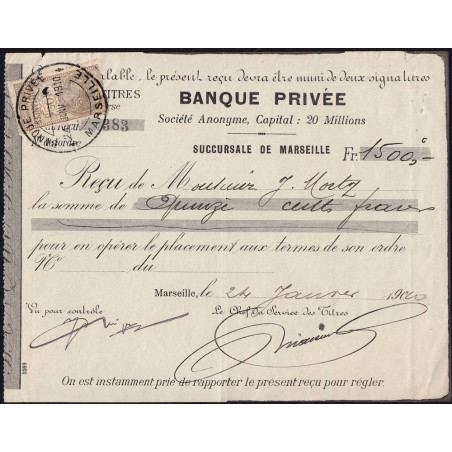 valable, le présent reçu devra être muni de deux signatures
TITRES
BANQUE PRIVÉE
MARSEILLE
Société Anonyme, Capital : 20 Millions
383
SUCCURSALE DE MARSEILLE
Fr. 1500,-
Reçu de Monsieur J.
la somme de Quinze cents francs
pour en opérer le placement aux termes de son ordre
N° du
Marseille, le 24 Janvier 1900
Vu pour contrôle
Le Chef du Service des Titres
On est instamment prié de rapporter le présent reçu pour régler.